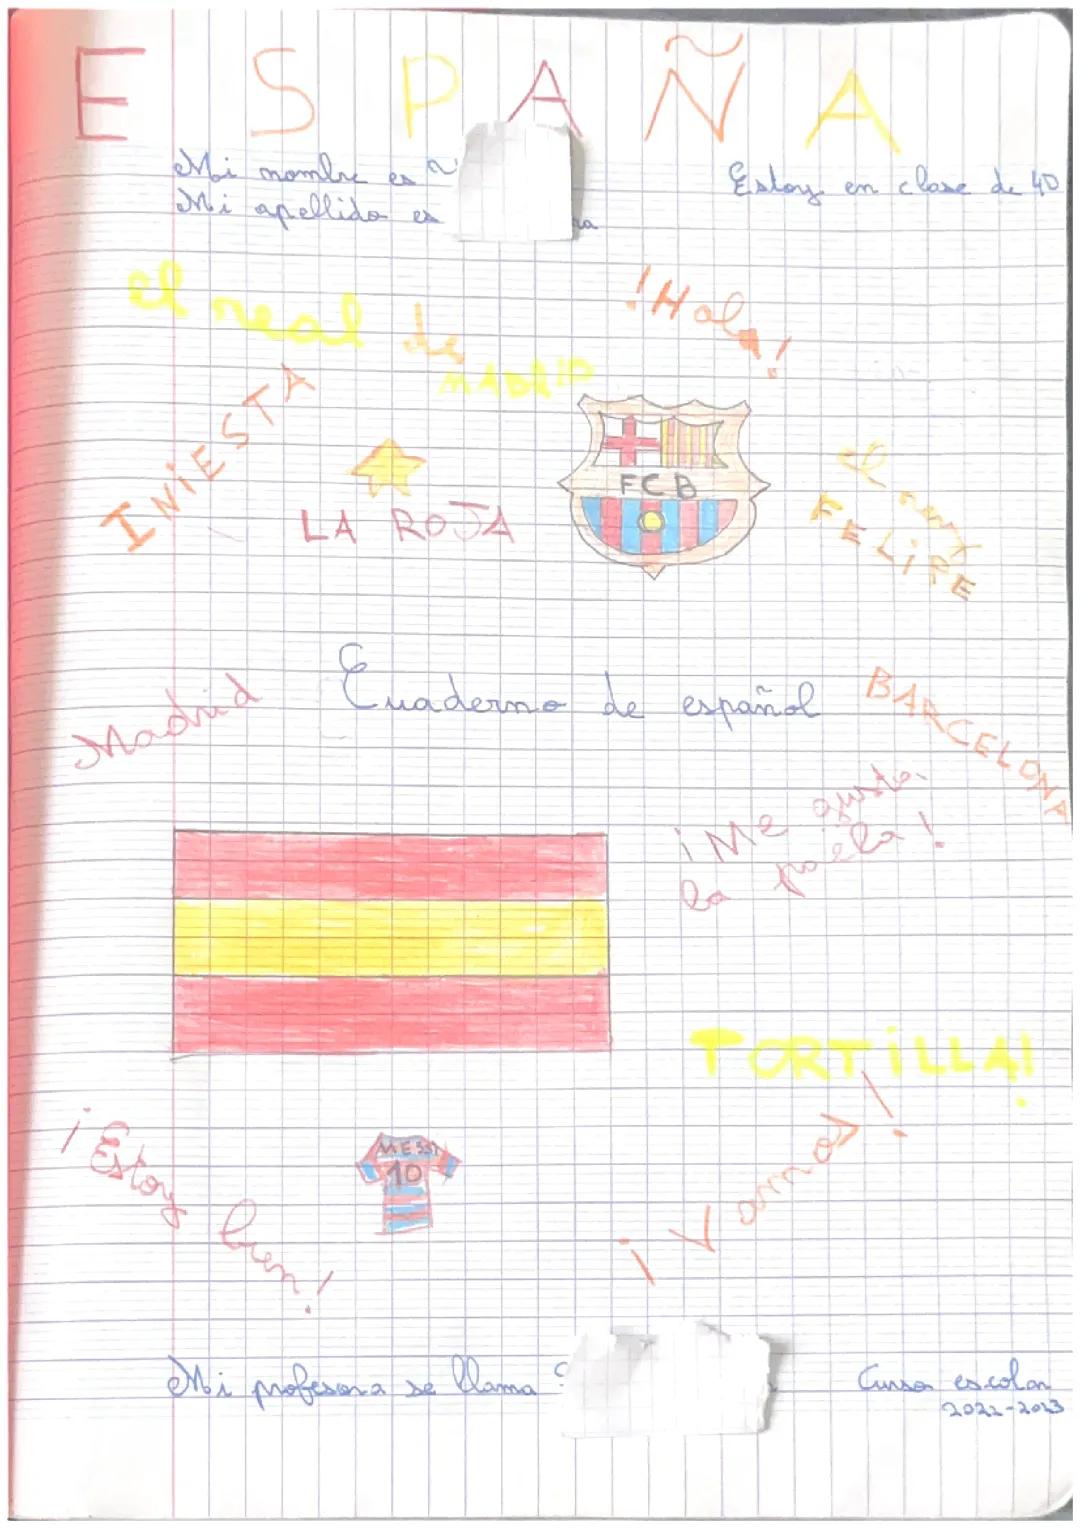 ESPAÑA
Mi nombre es
Mi apellido es
Estoy en clase de 4D
el real de
MADRID
!Hola!
INIESTA
LA ROJA
FCB
el rey
FELIPE
Madrid
Cuaderno de español
BARCELONA
¡Me gusta
la paëlla!
TORTiLLA!
¡Estoy bien!
MESSI
10
¡Vamos!
Mi profesora se llama
Curso escolar
2022-2023